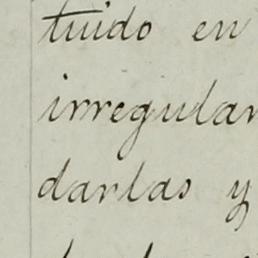 tuido en
irregular
darlas y